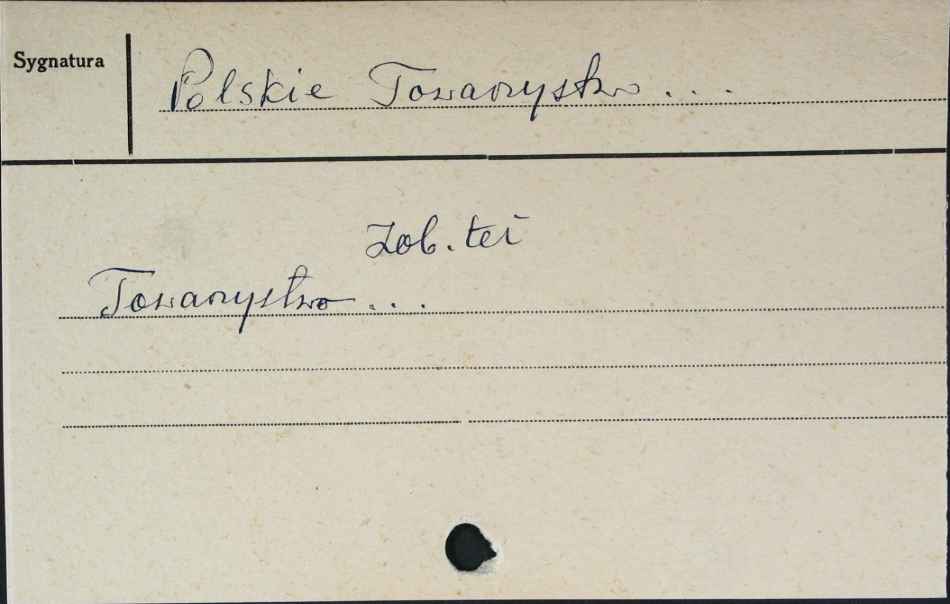 Sygnatura
Polskie Towarzystwo ...
zob. też
Towarzystwo ...